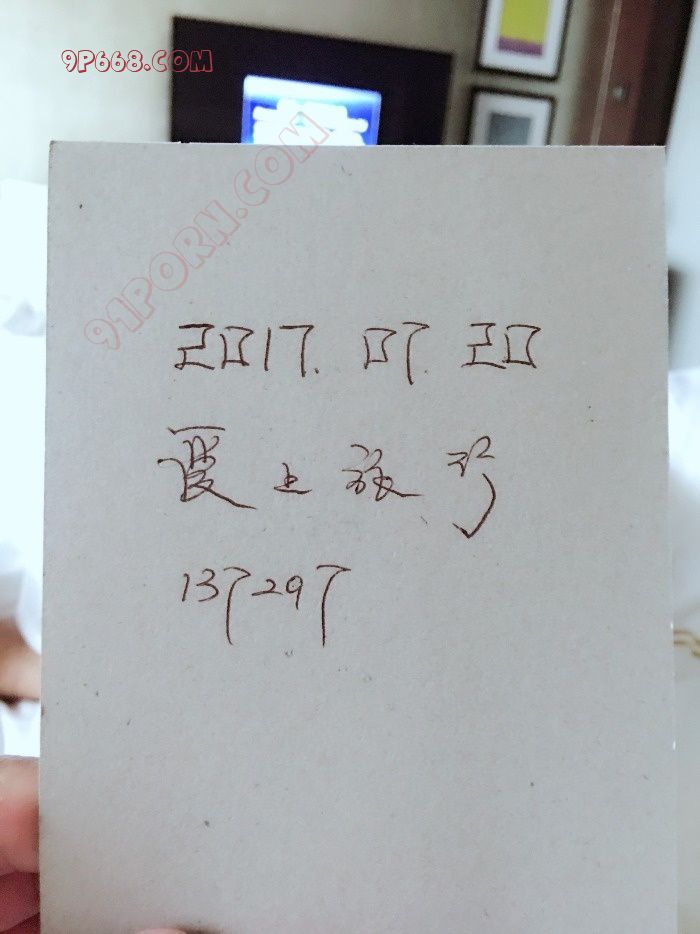 9P668.COM
91PORN.COM
2017.07.20
爱上旅行
137297